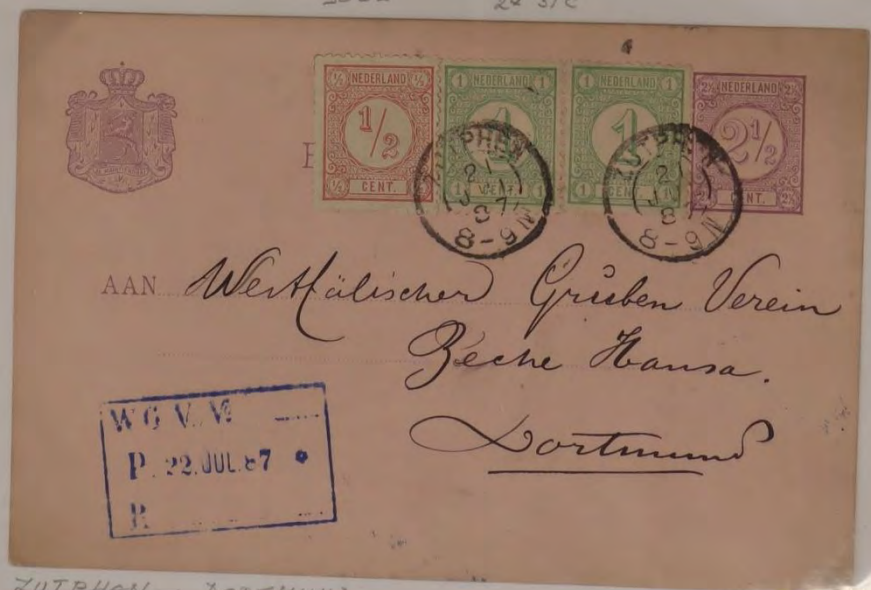 ½ NEDERLAND ½
½
½ CENT. ½
1 NEDERLAND 1
1
1 CENT. 1
1 NEDERLAND 1
1
1 CENT. 1
2½ NEDERLAND 2½
2½
2½ CENT. 2½
ZUTPHEN
21
87
8-9 N
ZUTPHEN
21
8
8-9 N
AAN Westfälischer Gruben Verein
Zeche Hansa.
Dortmund
W G V.
P. 22.JUL.87
R
ZUTPHEN